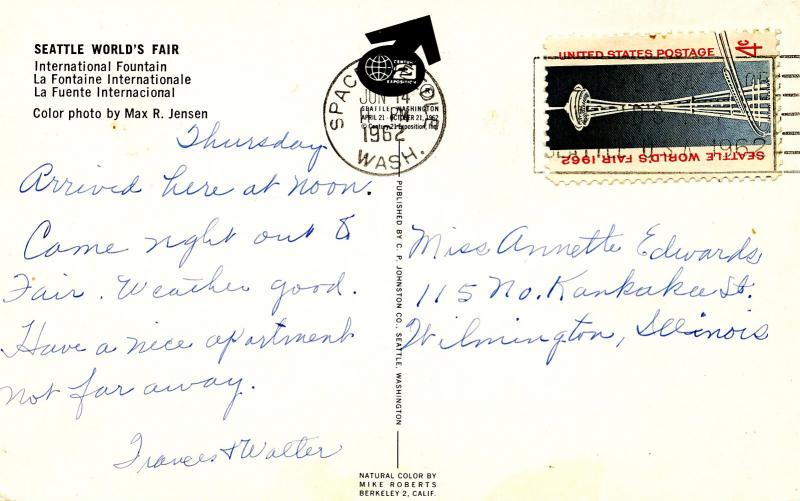 SEATTLE WORLD'S FAIR
International Fountain
La Fontaine Internationale
La Fuente Internacional
Color photo by Max R. Jensen
Thursday
Arrived here at noon.
Came right out to
Fair. Weather good.
Have a nice apartment
not far away.
Frances & Walter
CENTURY 21
EXPOSITION
SEATTLE, WASHINGTON
APRIL 21 - OCTOBER 21, 1962
© Century 21 Exposition, Inc.
JUN 14
1962
WASH.
PUBLISHED BY C. P. JOHNSTON CO., SEATTLE, WASHINGTON
NATURAL COLOR BY
MIKE ROBERTS
BERKELEY 2, CALIF.
UNITED STATES POSTAGE 4c
SEATTLE WORLD'S FAIR 1962
1962
Miss Annette Edwards
115 No. Kankakee St.
Wilmington, Illinois